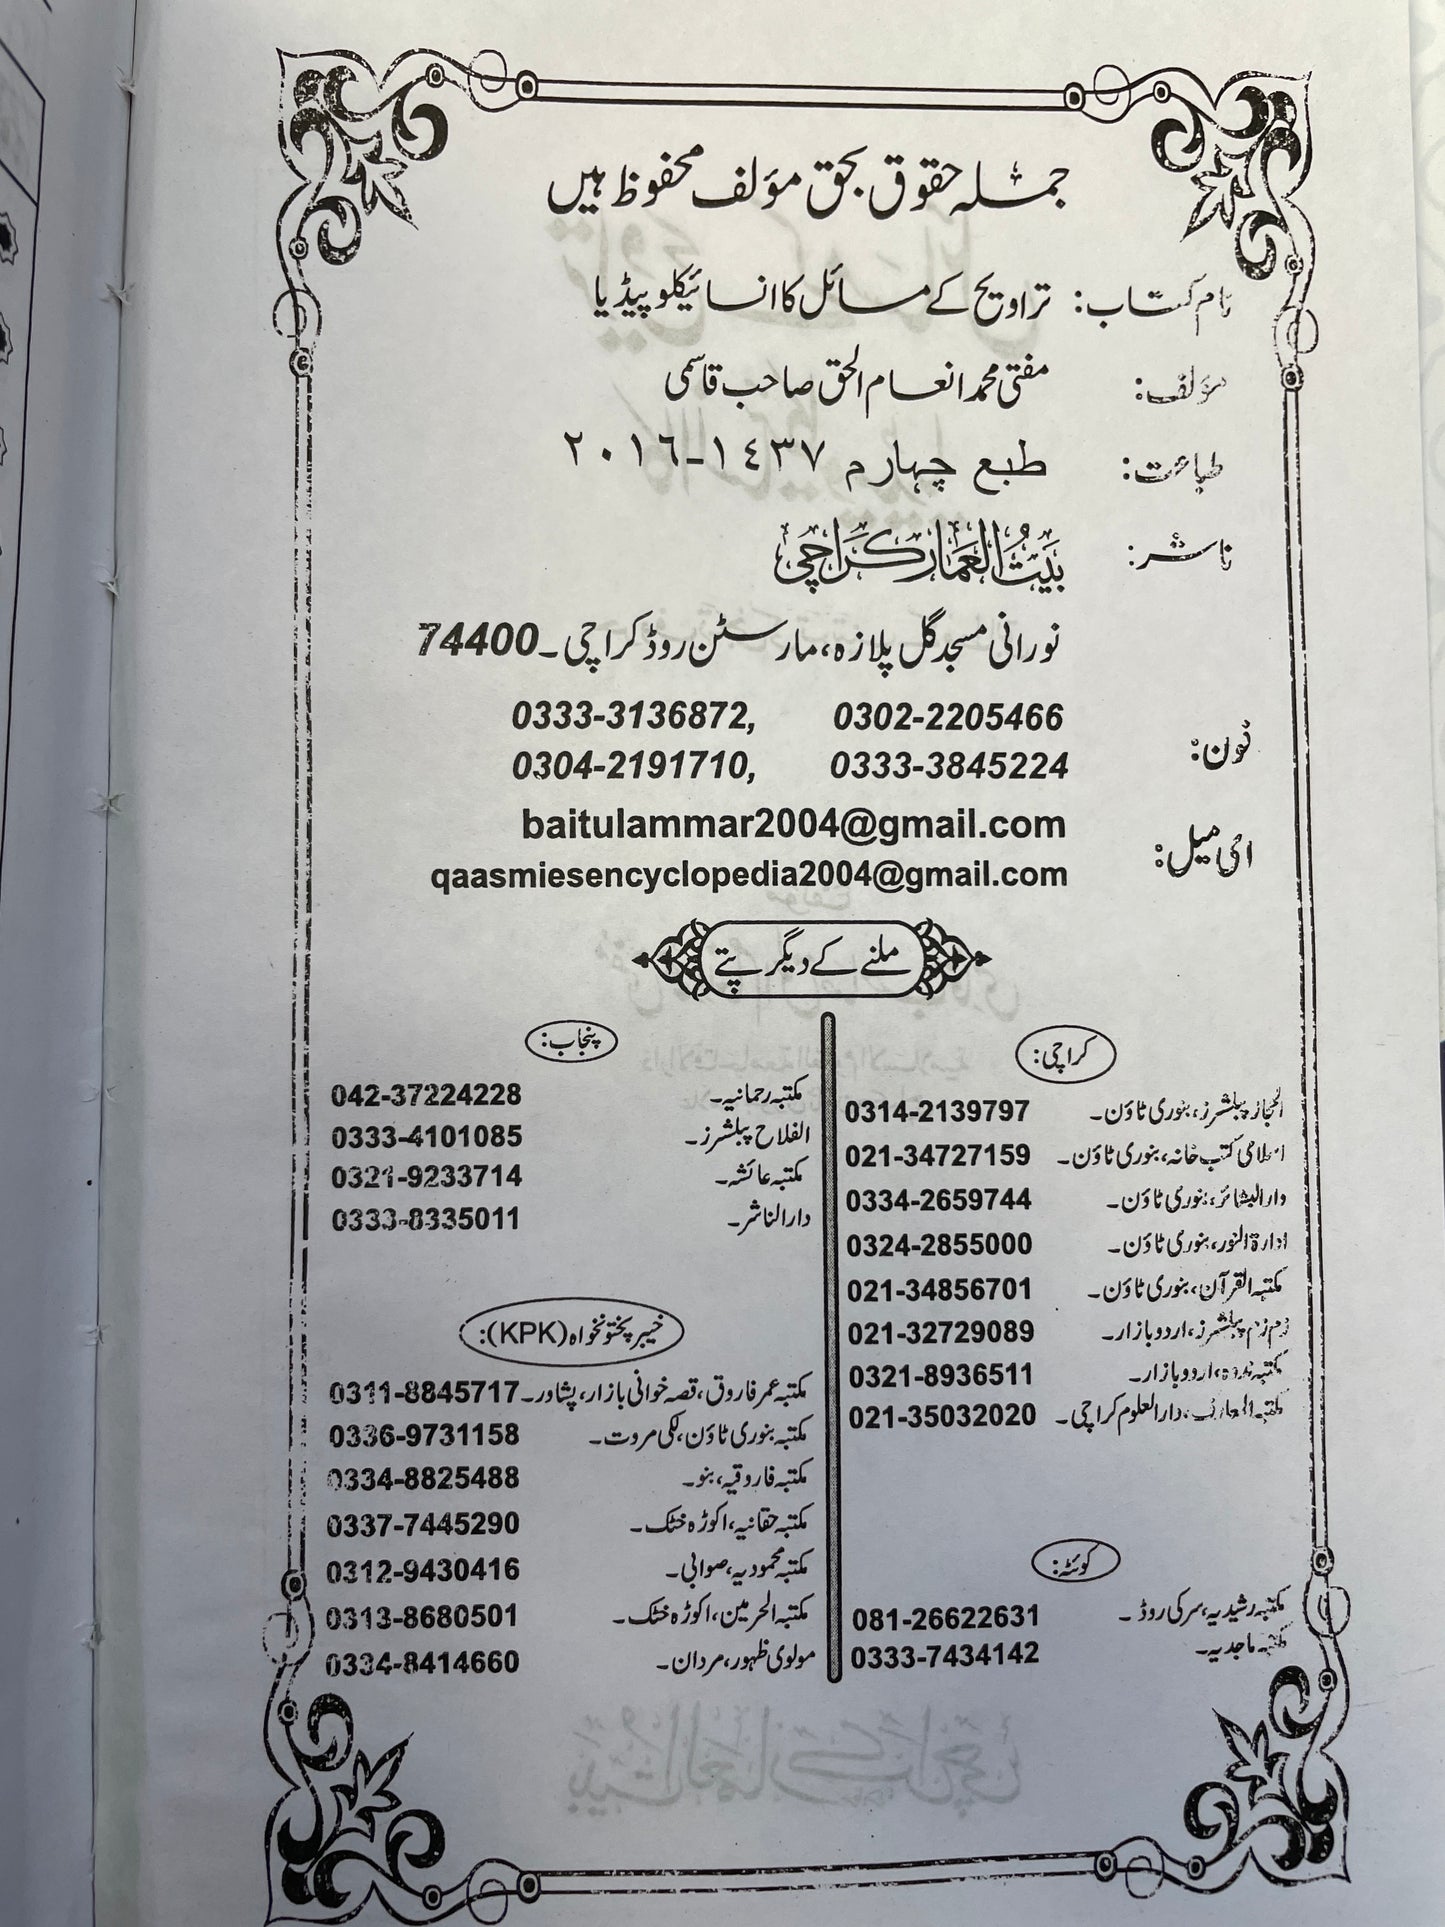 جملہ حقوق بحق مؤلف محفوظ ہیں
نام کتاب: تراویح کے مسائل کا انسائیکلوپیڈیا
مؤلف: مفتی محمد انعام الحق صاحب قاسمی
طباعت: طبع چہارم ١٤٣٧-٢٠١٦
ناشر: بَيْتُ الْعَمَار كَرَاچِي
نورانی مسجد گل پلازہ، مارسٹن روڈ کراچی۔74400
فون: 0302-2205466 0333-3136872,
0333-3845224 0304-2191710,
ای میل: baitulammar2004@gmail.com
qaasmiesencyclopedia2004@gmail.com
ملنے کے دیگر پتے
کراچی:
الحجاز پبلشرز، بنوری ٹاؤن۔ 0314-2139797
اسلامی کتب خانہ، بنوری ٹاؤن۔ 021-34727159
دارالبشائر، بنوری ٹاؤن۔ 0334-2659744
ادارۃ النور، بنوری ٹاؤن۔ 0324-2855000
مکتبہ القرآن، بنوری ٹاؤن۔ 021-34856701
زم زم پبلشرز، اردو بازار۔ 021-32729089
مکتبہ ندوہ، اردو بازار۔ 0321-8936511
مکتبہ المعارف، دارالعلوم کراچی۔ 021-35032020
کوئٹہ:
مکتبہ رشیدیہ، سرکی روڈ۔ 081-26622631
مکتبہ ماجدیہ۔ 0333-7434142
پنجاب:
مکتبہ رحمانیہ۔ 042-37224228
الفلاح پبلشرز۔ 0333-4101085
مکتبہ عائشہ۔ 0321-9233714
دارالناشر۔ 0333-8335011
خیبر پختونخواہ (KPK):
مکتبہ عمر فاروق، قصہ خوانی بازار، پشاور۔ 0311-8845717
مکتبہ بنوری ٹاؤن، لکی مروت۔ 0336-9731158
مکتبہ فاروقیہ، بنو۔ 0334-8825488
مکتبہ حقانیہ، اکوڑہ خٹک۔ 0337-7445290
مکتبہ محمودیہ، صوابی۔ 0312-9430416
مکتبہ الحرمین، اکوڑہ خٹک۔ 0313-8680501
مولوی ظہور، مردان۔ 0334-8414660